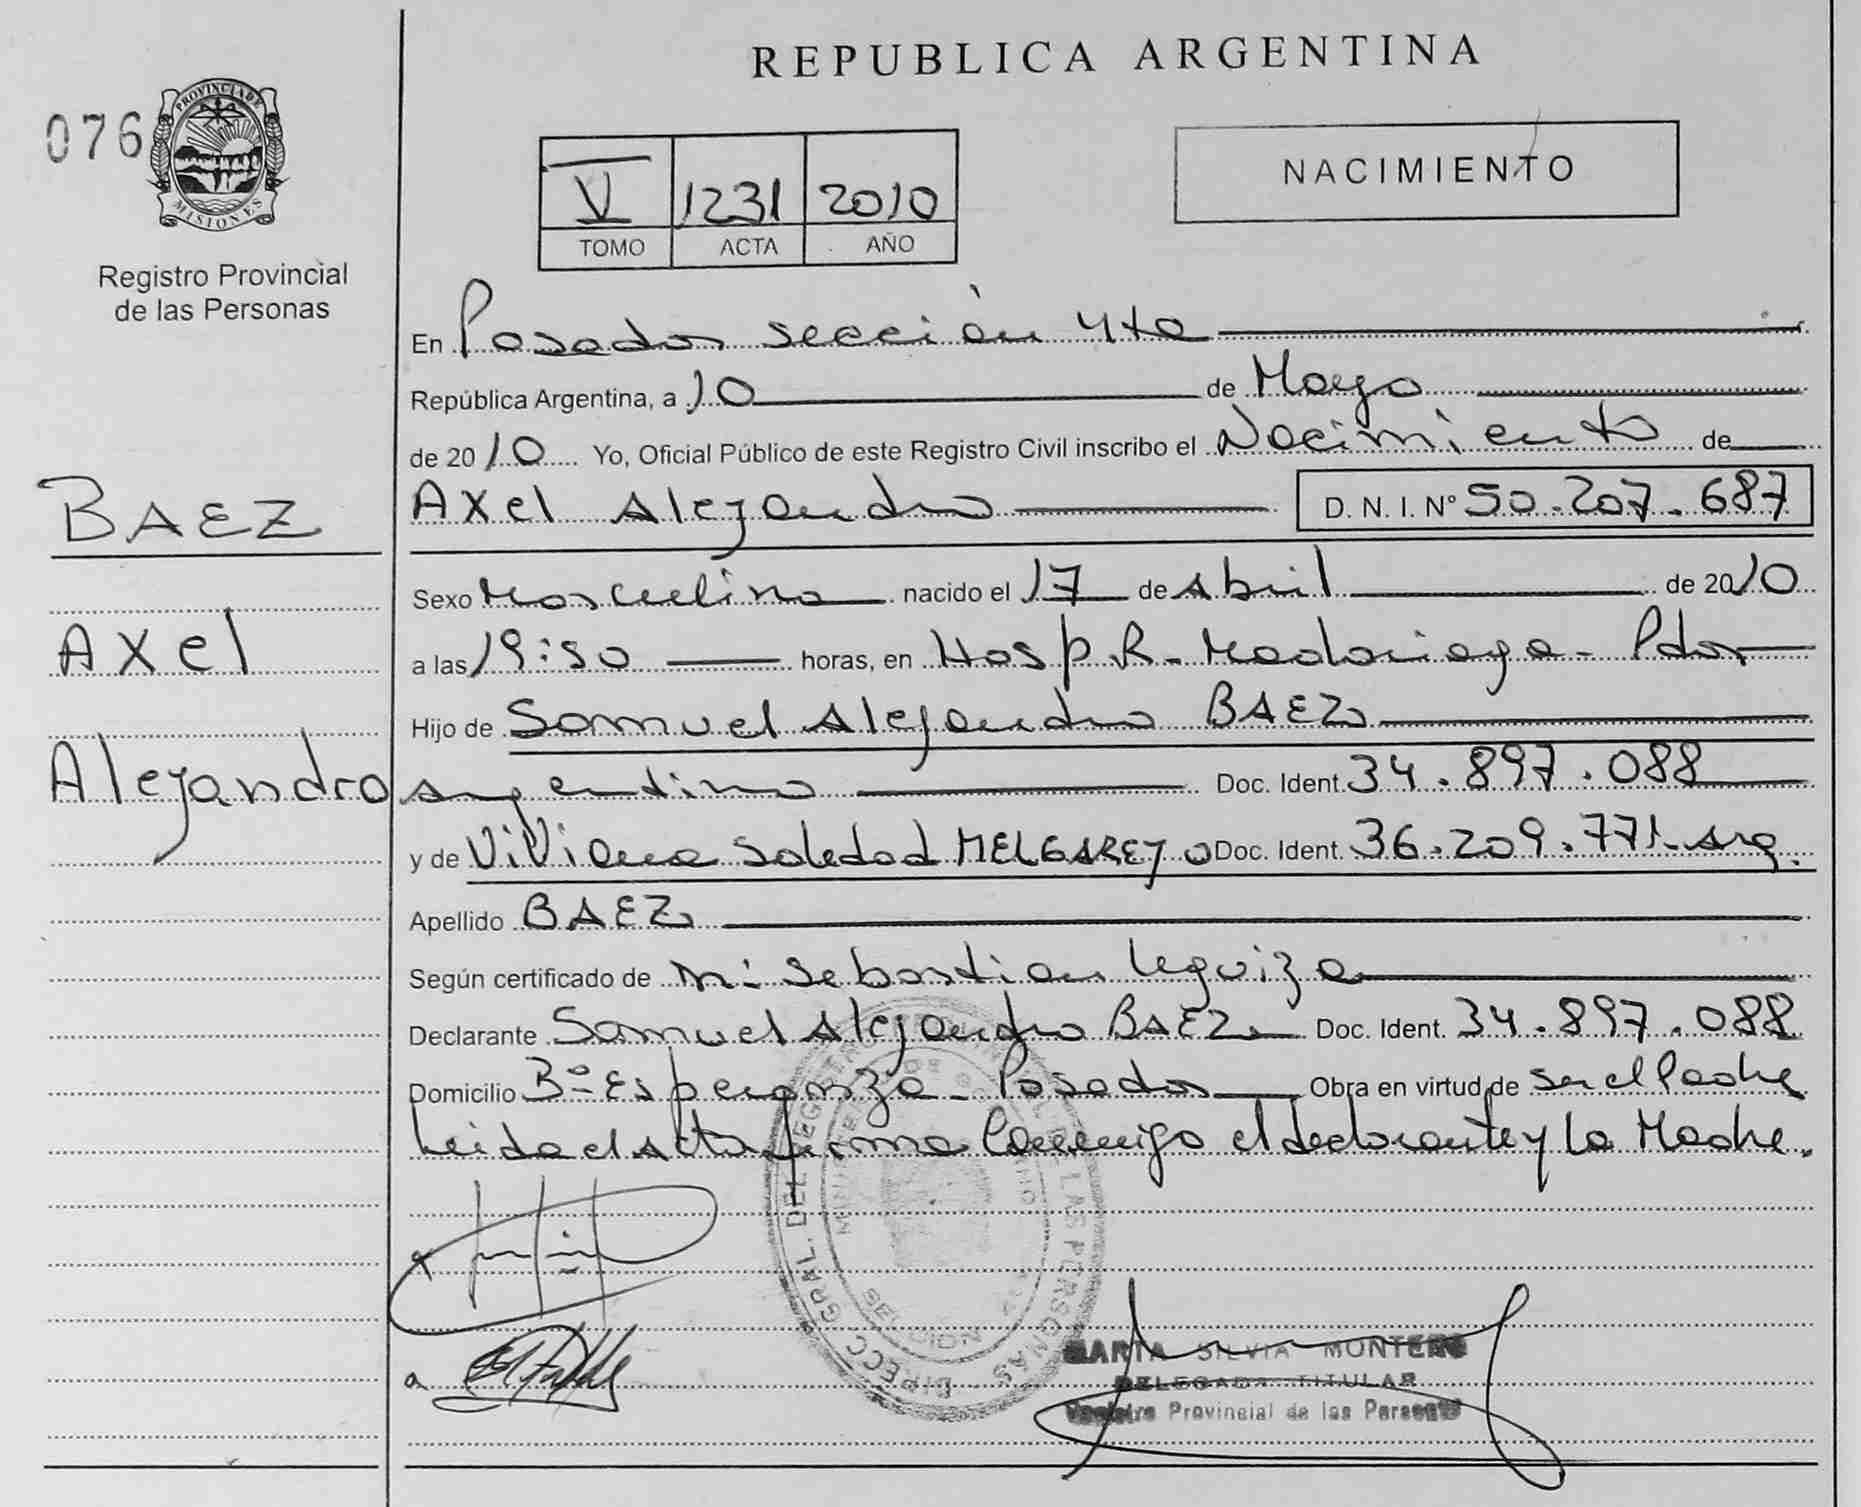 REPUBLICA ARGENTINA
076
PROVINCIA DE
MISIONES
Registro Provincial
de las Personas
V 1231 2010
TOMO ACTA AÑO
NACIMIENTO
En Posadas sección 4ta
República Argentina, a 10 de Mayo
de 2010 Yo, Oficial Público de este Registro Civil inscribo el Nacimiento de
BAEZ
Axel Alejandro D. N. I. Nº 50.207.687
Sexo Masculino nacido el 17 de Abril de 2010
Axel
a las 19:50 horas, en Hosp R. Madariaga - Pdas
Hijo de Samuel Alejandro BAEZ
Alejandro
Argentino Doc. Ident. 34.897.088
y de Viviana Soledad MELGAREJO Doc. Ident. 36.209.771 - Arg.
Apellido BAEZ
Según certificado de Sebastian
Declarante Samuel Alejandro BAEZ Doc. Ident. 34.897.088
Domicilio Bº Esperanza - Posadas Obra en virtud de ser el Padre
Leida el Acta firma Conmigo el declarante y la Madre.
DIRECC. GRAL. DEL REGISTRO DE LAS PERSONAS
MARTA SILVIA MONTERO
DELEGADA TITULAR
Registro Provincial de las Personas